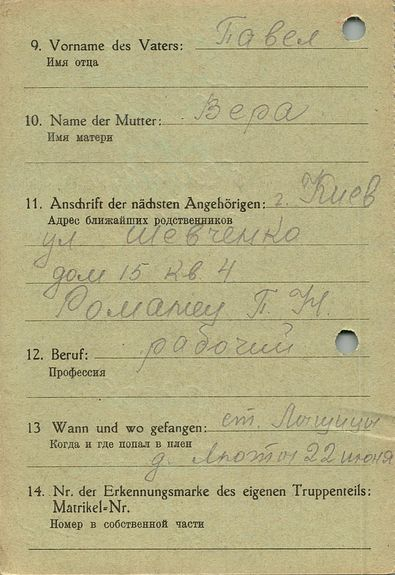 9. Vorname des Vaters: Павел
Имя отца
10. Name der Mutter: Вера
Имя матери
11. Anschrift der nächsten Angehörigen: г. Киев
Адрес ближайших родственников
ул Шевченко
дом 15 кв. 4
П. Н.
12. Beruf: рабочий
Профессия
13 Wann und wo gefangen: ст.
Когда и где попал в плен
д. 22 июня
14. Nr. der Erkennungsmarke des eigenen Truppenteils:
Matrikel-Nr.
Номер в собственной части